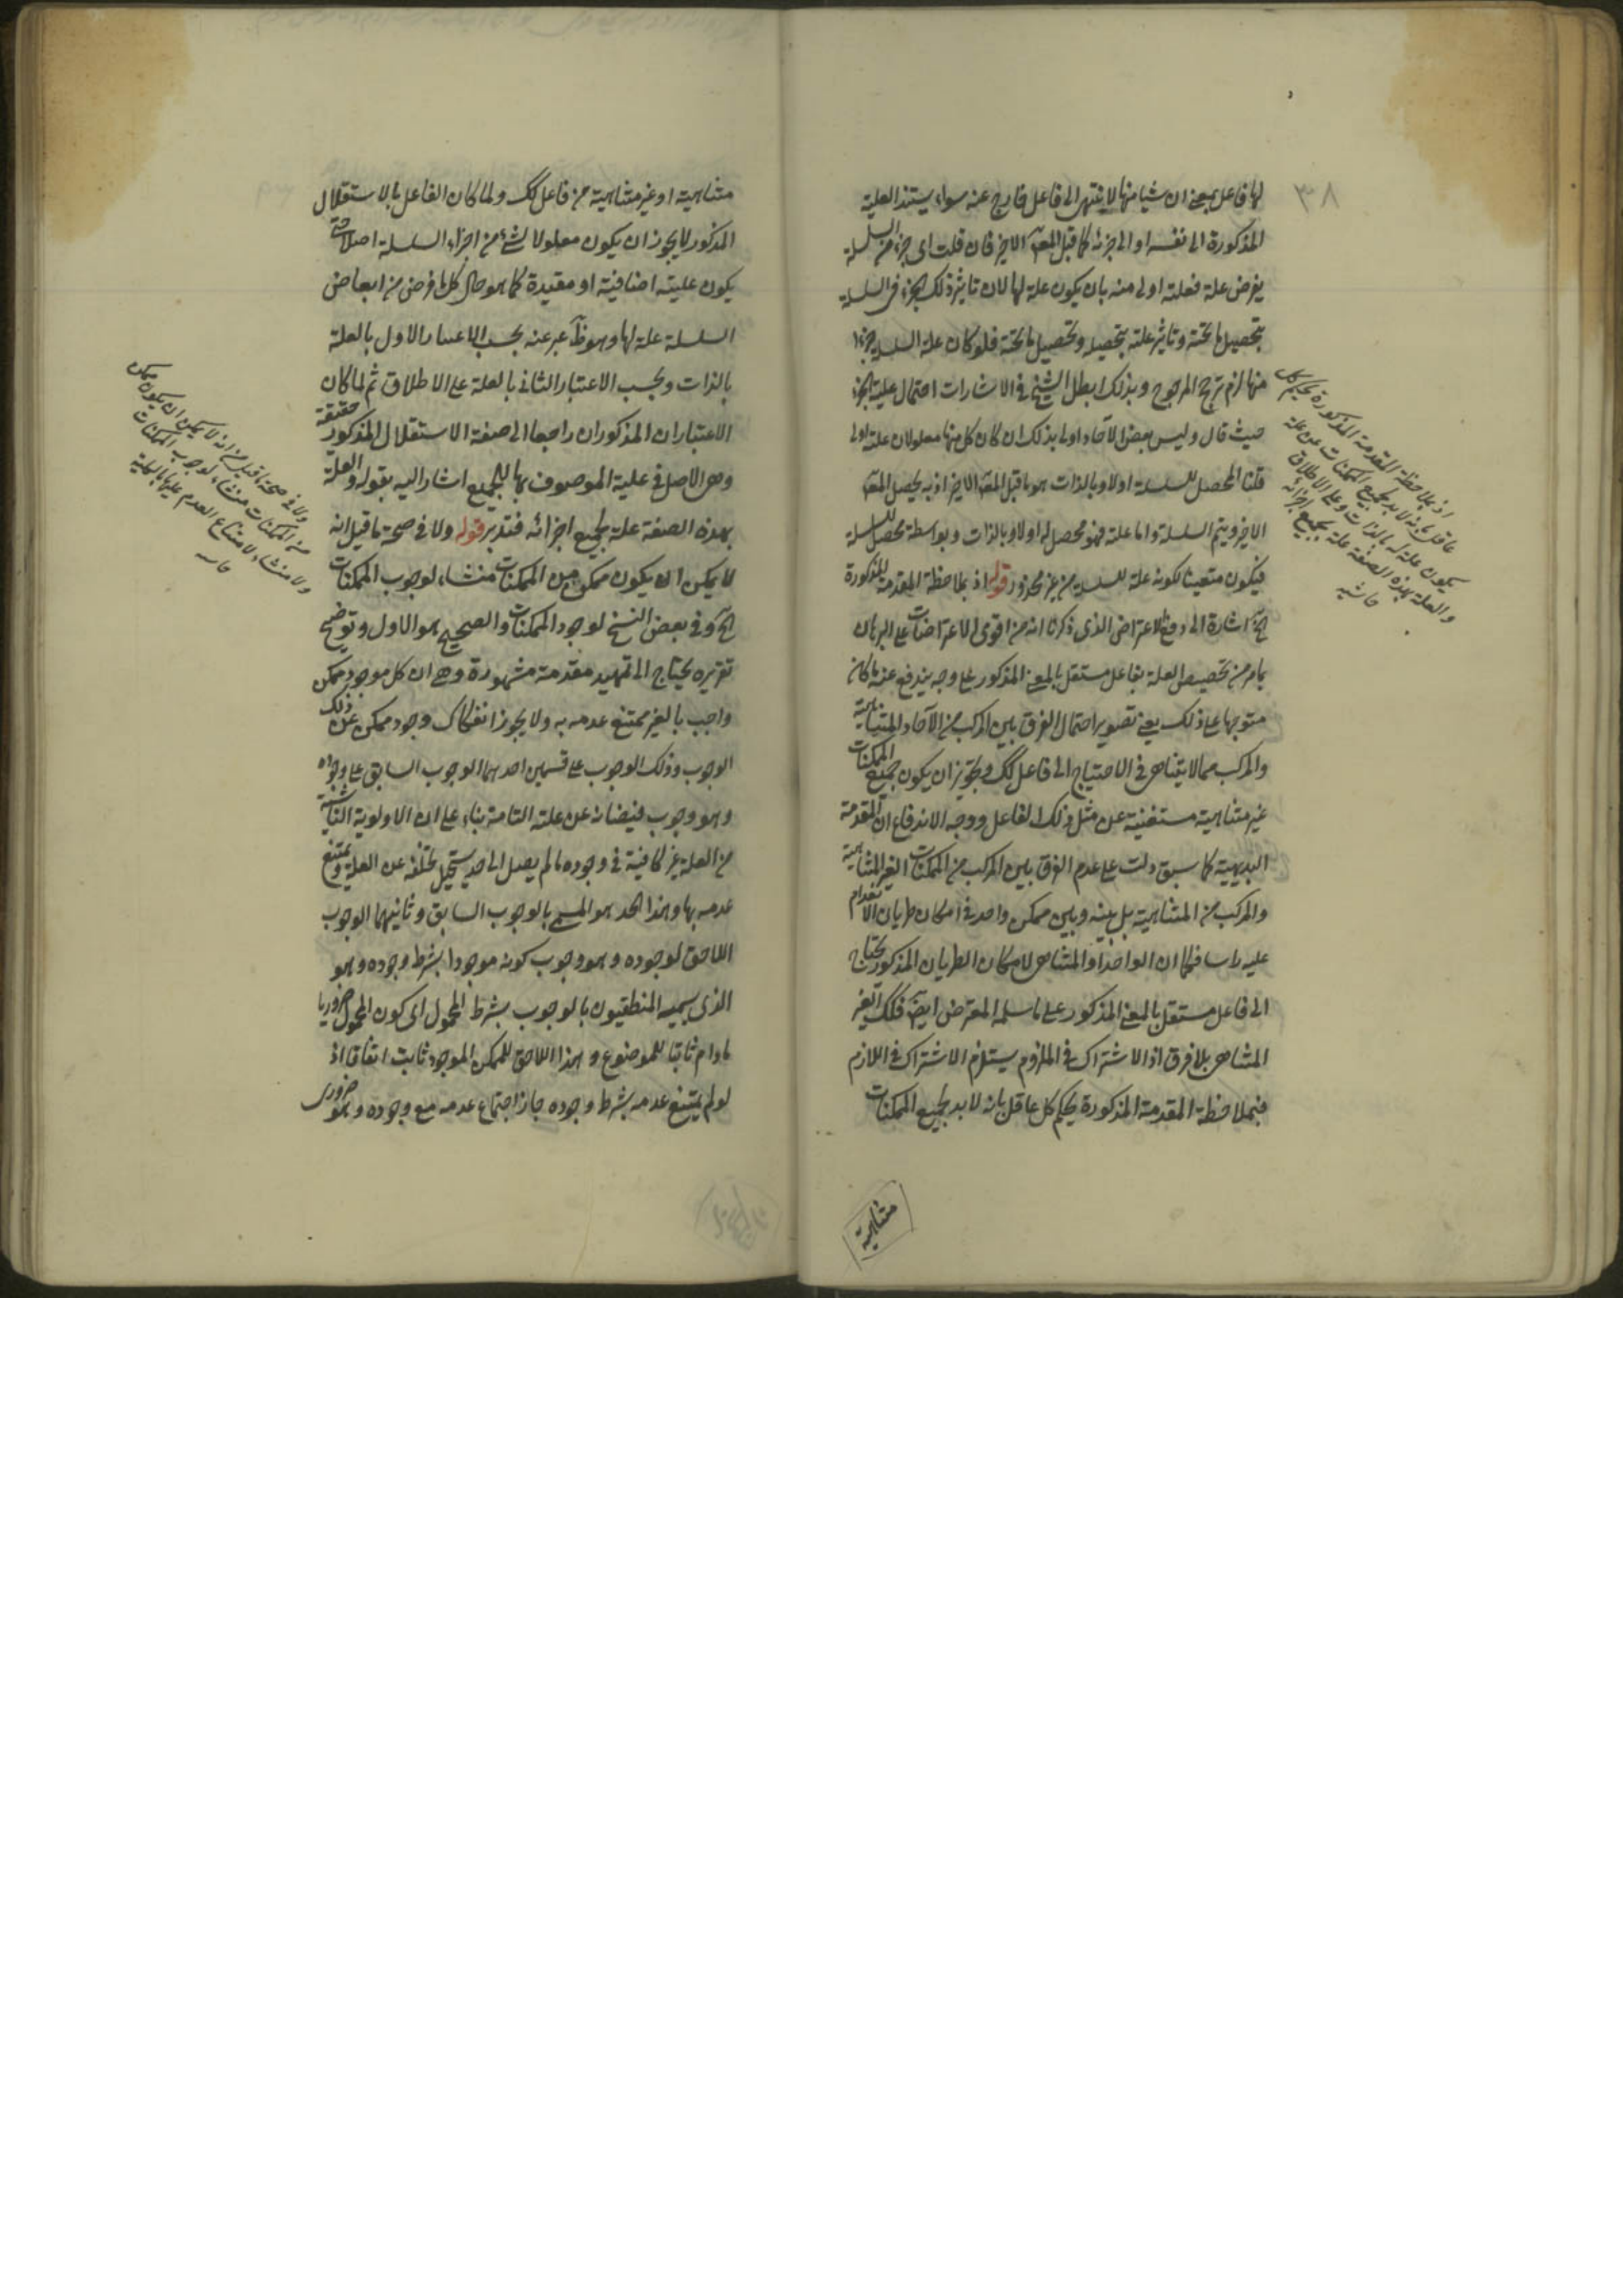 ٣٨
لها فاعل بمعنى ان شيا منها لا ينتهى الى فاعل خارج عنه سواء يستند العلية
المذكورة الى نفسه او الى جزئه كما قبل المعلول الاخير فان قلت اى جزء من السلسلة
يفرض علة فعلته اولى منه بان يكون علة لها لان تاثير ذلك الجزء فى السلسلة
بتحصيل ما تحته وتاثير علته بتحصيله وتحصيل ما تحته فلو كان علة السلسلة جزءا
منها لزم ترجح المرجوح وبذلك ابطل الشيخ فى الاشارات احتمال علية الجزء
حيث قال وليس بعض الآحاد اولى بذلك ان كان كل منها معلولا لان علته اولى
قلنا المحصل للسلسلة اولا وبالذات هو ما قبل المعلول الاخير اذ به يحصل المعلول
الاخير ويتم السلسلة واما علته فهو محصل له اولا وبالذات وبواسطة محصل للسلسلة
فيكون متعينا لكونه علة للسلسلة من غير محذور قوله اذ بملاحظة المقدمة المذكورة
الخ اشارة الى دفع الاعتراض الذى ذكرنا انه من اقوى الاعتراضات على البرهان
بامر من تخصيص العلة بفاعل مستقل بالمعنى المذكور على وجه يندفع عنه ما كان
متوجها على ذلك يعنى تصوير احتمال الفرق بين المركب من الآحاد المتناهية
والمركب مما لا يتناهى فى الاحتياج الى فاعل كك وتجويز ان يكون جميع الممكنات
غير متناهية مستغنية عن مثل ذلك الفاعل ووجه الاندفاع ان المقدمة
البديهية كما سبق دلت على عدم الفرق بين المركب من الممكنات الغير المتناهية
والمركب من المتناهية بل بينه وبين ممكن واحد فى امكان طريان الانعدام
عليه راسا فكما ان الواحد او المتناهى لامكان الطريان المذكور يحتاج
الى فاعل مستقل بالمعنى المذكور على ما سلمه المعترض ايضا فكك الغير
المتناهى بلا فرق اذ الاشتراك فى الملزوم يستلزم الاشتراك فى اللازم
فبملاحظة المقدمة المذكورة يحكم كل عاقل بانه لا بد لجميع الممكنات
متناهية
اذ بملاحظة المقدمة المذكورة يحكم كل
عاقل بانه لا بد لجميع الممكنات من علة
يكون علة له بالذات وعلى الاطلاق
والعلة بهذه الصفة علة بجميع اجزائه
حاشيه
متناهية او غير متناهية من فاعل كك ولما كان الفاعل بالاستقلال
المذكور لا يجوز ان يكون معلولا لشئ من اجزاء السلسلة اصلا حتى
يكون عليته اضافية او مقيدة كما هو حال كل ما فرض من ابعاض
السلسلة علة لها وهو ظ عبر عنه بحسب الاعتبار الاول بالعلة
بالذات وبحسب الاعتبار الثانى بالعلة على الاطلاق ثم لما كان
الاعتباران المذكوران راجعا الى صفة الاستقلال المذكور حقيقة
وهى الاصل فى علية الموصوف بها للجميع اشار اليه بقوله والعلة
بهذه الصفة علة بجميع اجزائه فتدبر قوله ولا فى صحة ما قيل انه
لا يمكن ان يكون ممكن من الممكنات منشاء لوجوب الممكنات
الخ وفى بعض النسخ لوجود الممكنات والصحيح هو الاول وتوضيح
تقريره يحتاج الى تمهيد مقدمة مشهورة وهى ان كل موجود ممكن
واجب بالغير ممتنع عدمه به ولا يجوز انفكاك وجود ممكن عن ذلك
الوجوب وذلك الوجوب على قسمين احدهما الوجوب السابق على وجوده
وهو وجوب فيضانه عن علته التامة بناء على ان الاولوية الناشية
من العلة غير كافية فى وجوده ما لم يصل الى حد يستحيل تخلفه عن العلة ويمتنع
عدمه بها وهذا الحد هو المسمى بالوجوب السابق وثانيهما الوجوب
اللاحق لوجوده وهو وجوب كونه موجودا بشرط وجوده وهو
الذى يسميه المنطقيون بالوجوب بشرط المحمول اى كون المحمول ضروريا
ما دام ثابتا للموضوع وهذا اللاحق للممكن الموجود ثابت اتفاقا اذ
لو لم يمتنع عدمه بشرط وجوده جاز اجتماع عدمه مع وجوده وهو ضرورى
ولا فى صحة ما قيل من انه لا يمكن ان يكون ممكن
من الممكنات منشاء لوجوب الممكنات
ولا منشاء لامتناع العدم عليها بالكلية